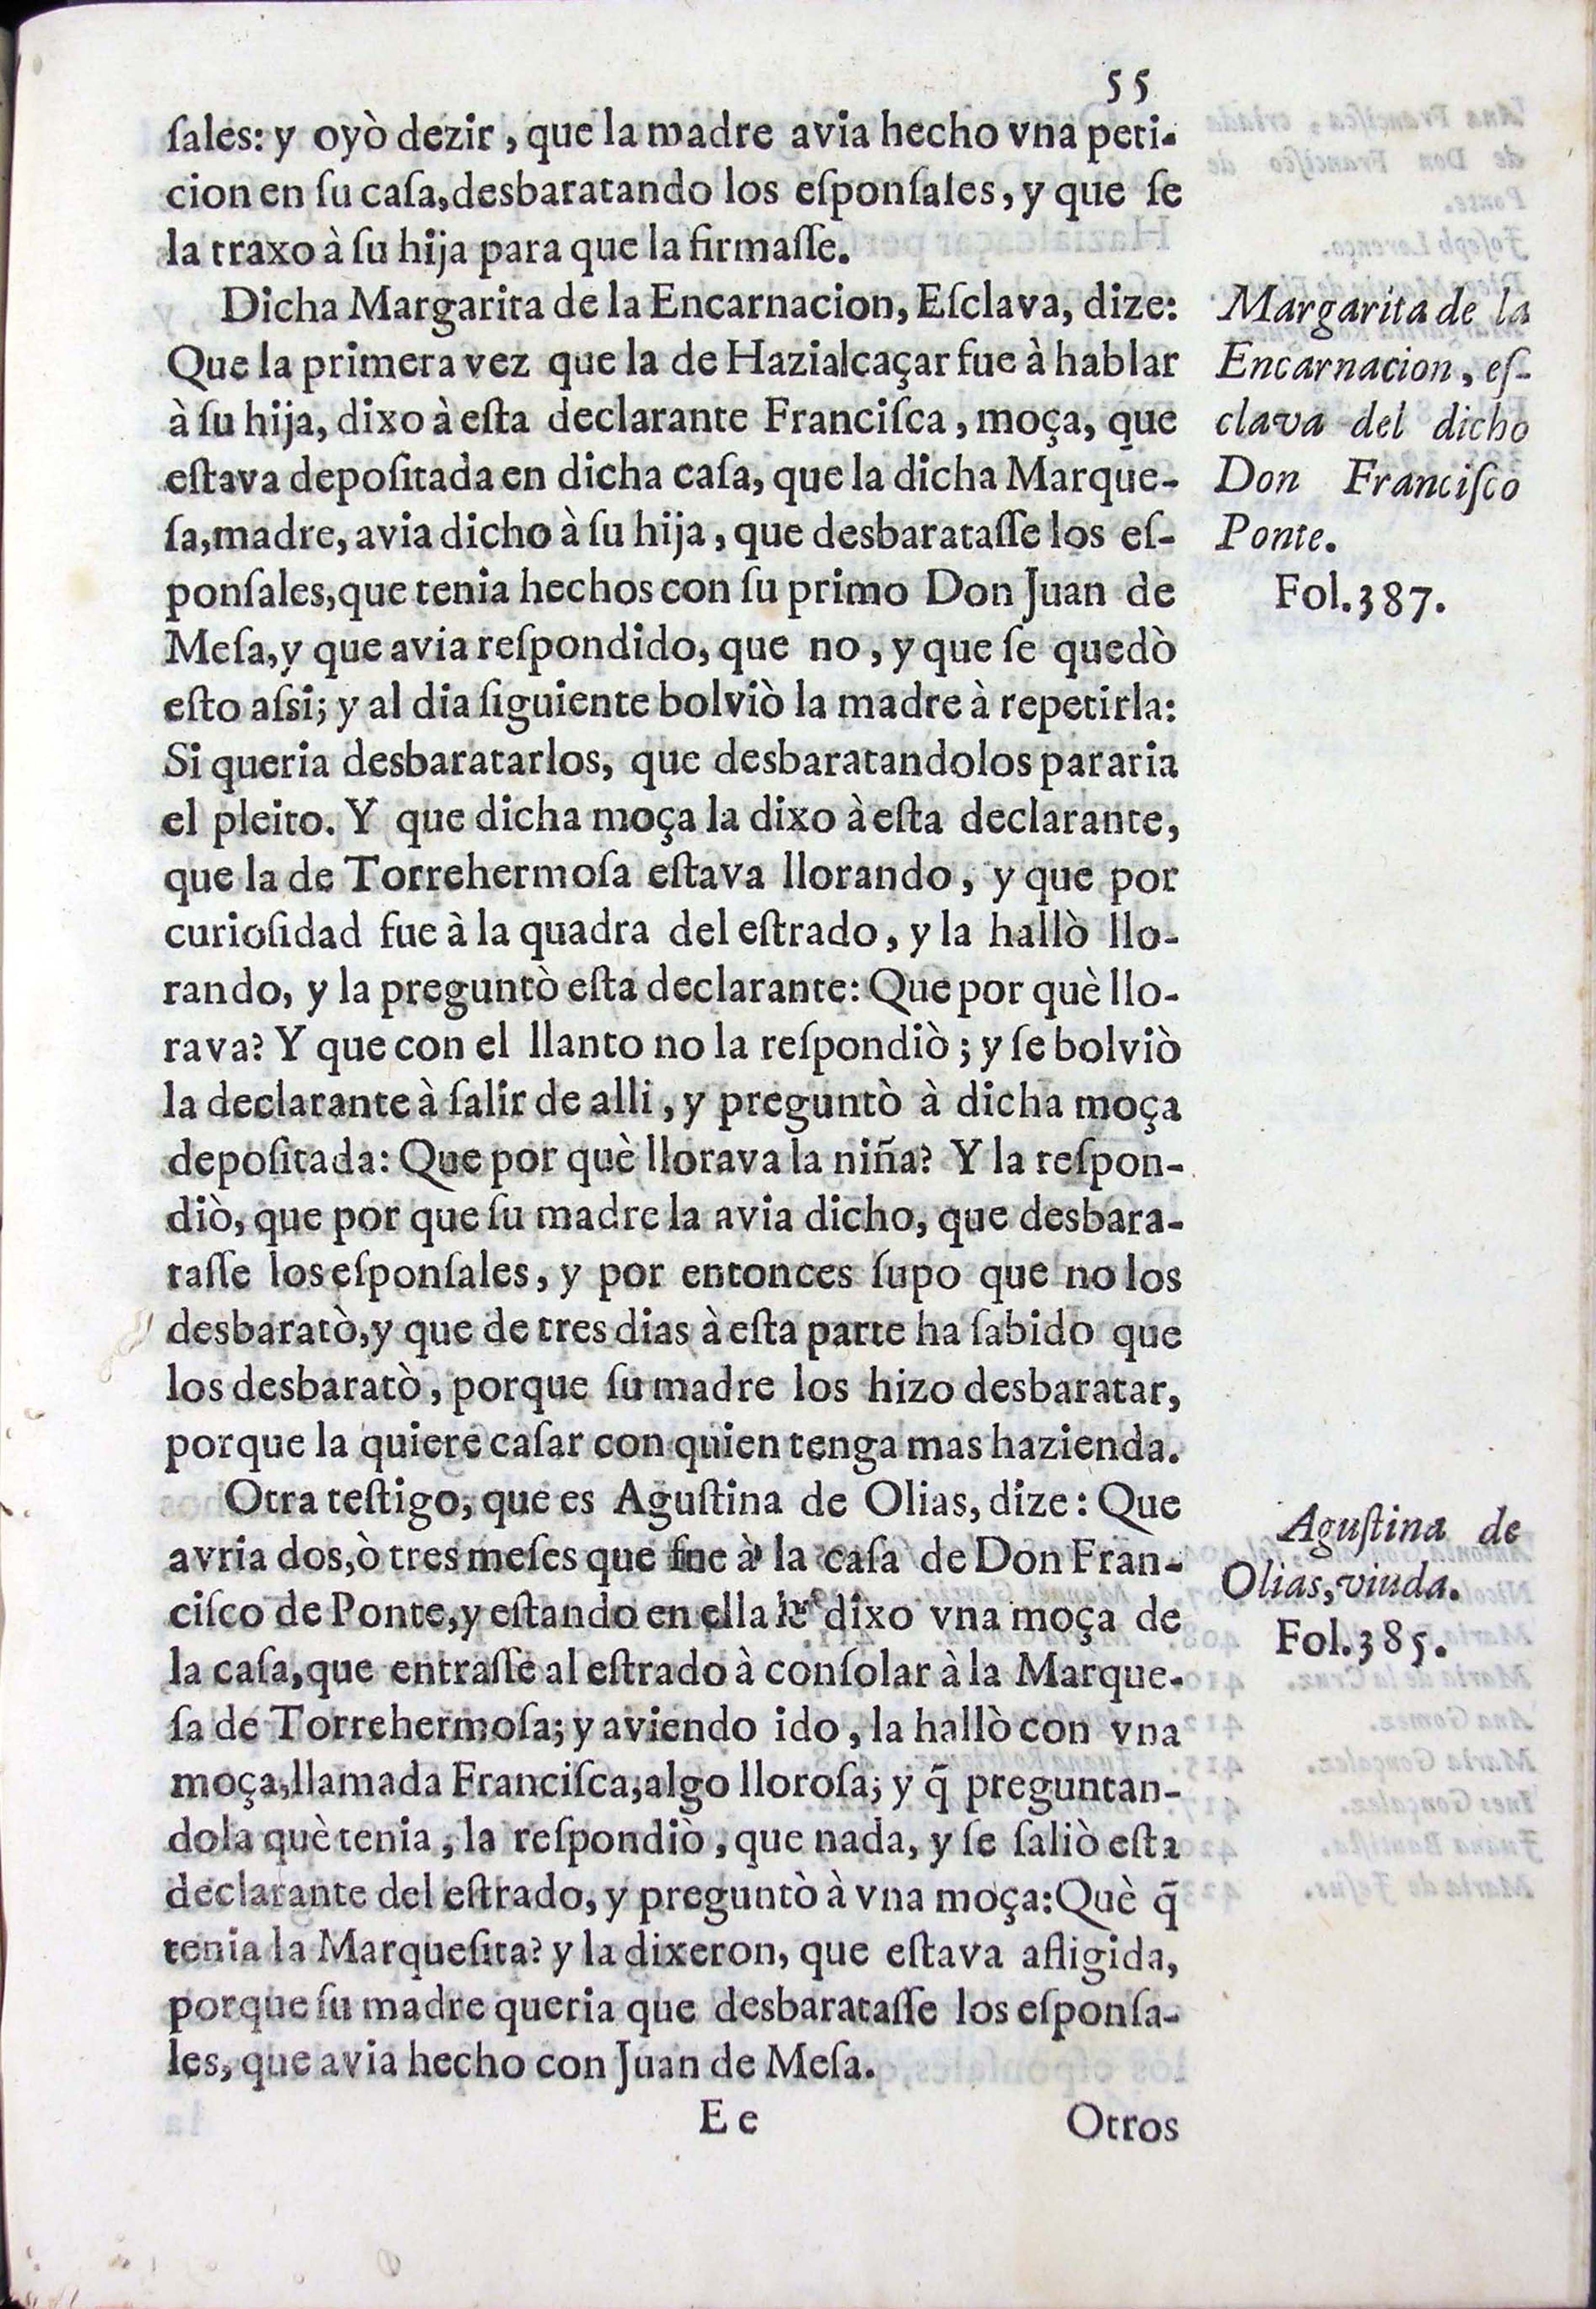 55
ſales: y oyò dezir, que la madre avia hecho vna peti-
cion en ſu caſa, desbaratando los eſponſales, y que ſe
la traxo à ſu hija para que la firmaſſe.
Dicha Margarita de la Encarnacion, Eſclava, dize:
Que la primera vez que la de Hazialcaçar fue à hablar
à ſu hija, dixo à eſta declarante Franciſca, moça, que
eſtava depoſitada en dicha caſa, que la dicha Marque-
ſa, madre, avia dicho à ſu hija, que desbarataſſe los eſ-
ponſales, que tenia hechos con ſu primo Don Juan de
Meſa, y que avia reſpondido, que no, y que ſe quedò
eſto aſsi; y al dia ſiguiente bolviò la madre à repetirla:
Si queria desbaratarlos, que desbaratandolos pararia
el pleito. Y que dicha moça la dixo à eſta declarante,
que la de Torrehermoſa eſtava llorando, y que por
curioſidad fue à la quadra del eſtrado, y la hallò llo-
rando, y la preguntò eſta declarante: Que por què llo-
rava? Y que con el llanto no la reſpondiò; y ſe bolviò
la declarante à ſalir de alli, y preguntò à dicha moça
depoſitada: Que por què llorava la niña? Y la reſpon-
diò, que por que ſu madre la avia dicho, que desbara-
taſſe los eſponſales, y por entonces ſupo que no los
desbaratò, y que de tres dias à eſta parte ha ſabido que
los desbaratò, porque ſu madre los hizo desbaratar,
porque la quiere caſar con quien tenga mas hazienda.
Otra teſtigo, que es Aguſtina de Olias, dize: Que
avria dos, ò tres meſes que fue à la caſa de Don Fran-
ciſco de Ponte, y eſtando en ella le dixo vna moça de
la caſa, que entraſſe al eſtrado à conſolar à la Marque-
ſa de Torrehermoſa; y aviendo ido, la hallò con vna
moça, llamada Franciſca, algo lloroſa; y q̃ preguntan-
dola què tenia, la reſpondiò, que nada, y ſe ſaliò eſta
declarante del eſtrado, y preguntò à vna moça: Què q̃
tenia la Marqueſita? y la dixeron, que eſtava afligida,
porque ſu madre queria que desbarataſſe los eſponſa-
les, que avia hecho con Juan de Meſa.
Ee
Otros
Margarita de la
Encarnacion, eſ-
clava del dicho
Don Franciſco
Ponte.
Fol. 387.
Aguſtina de
Olias, viuda.
Fol. 385.